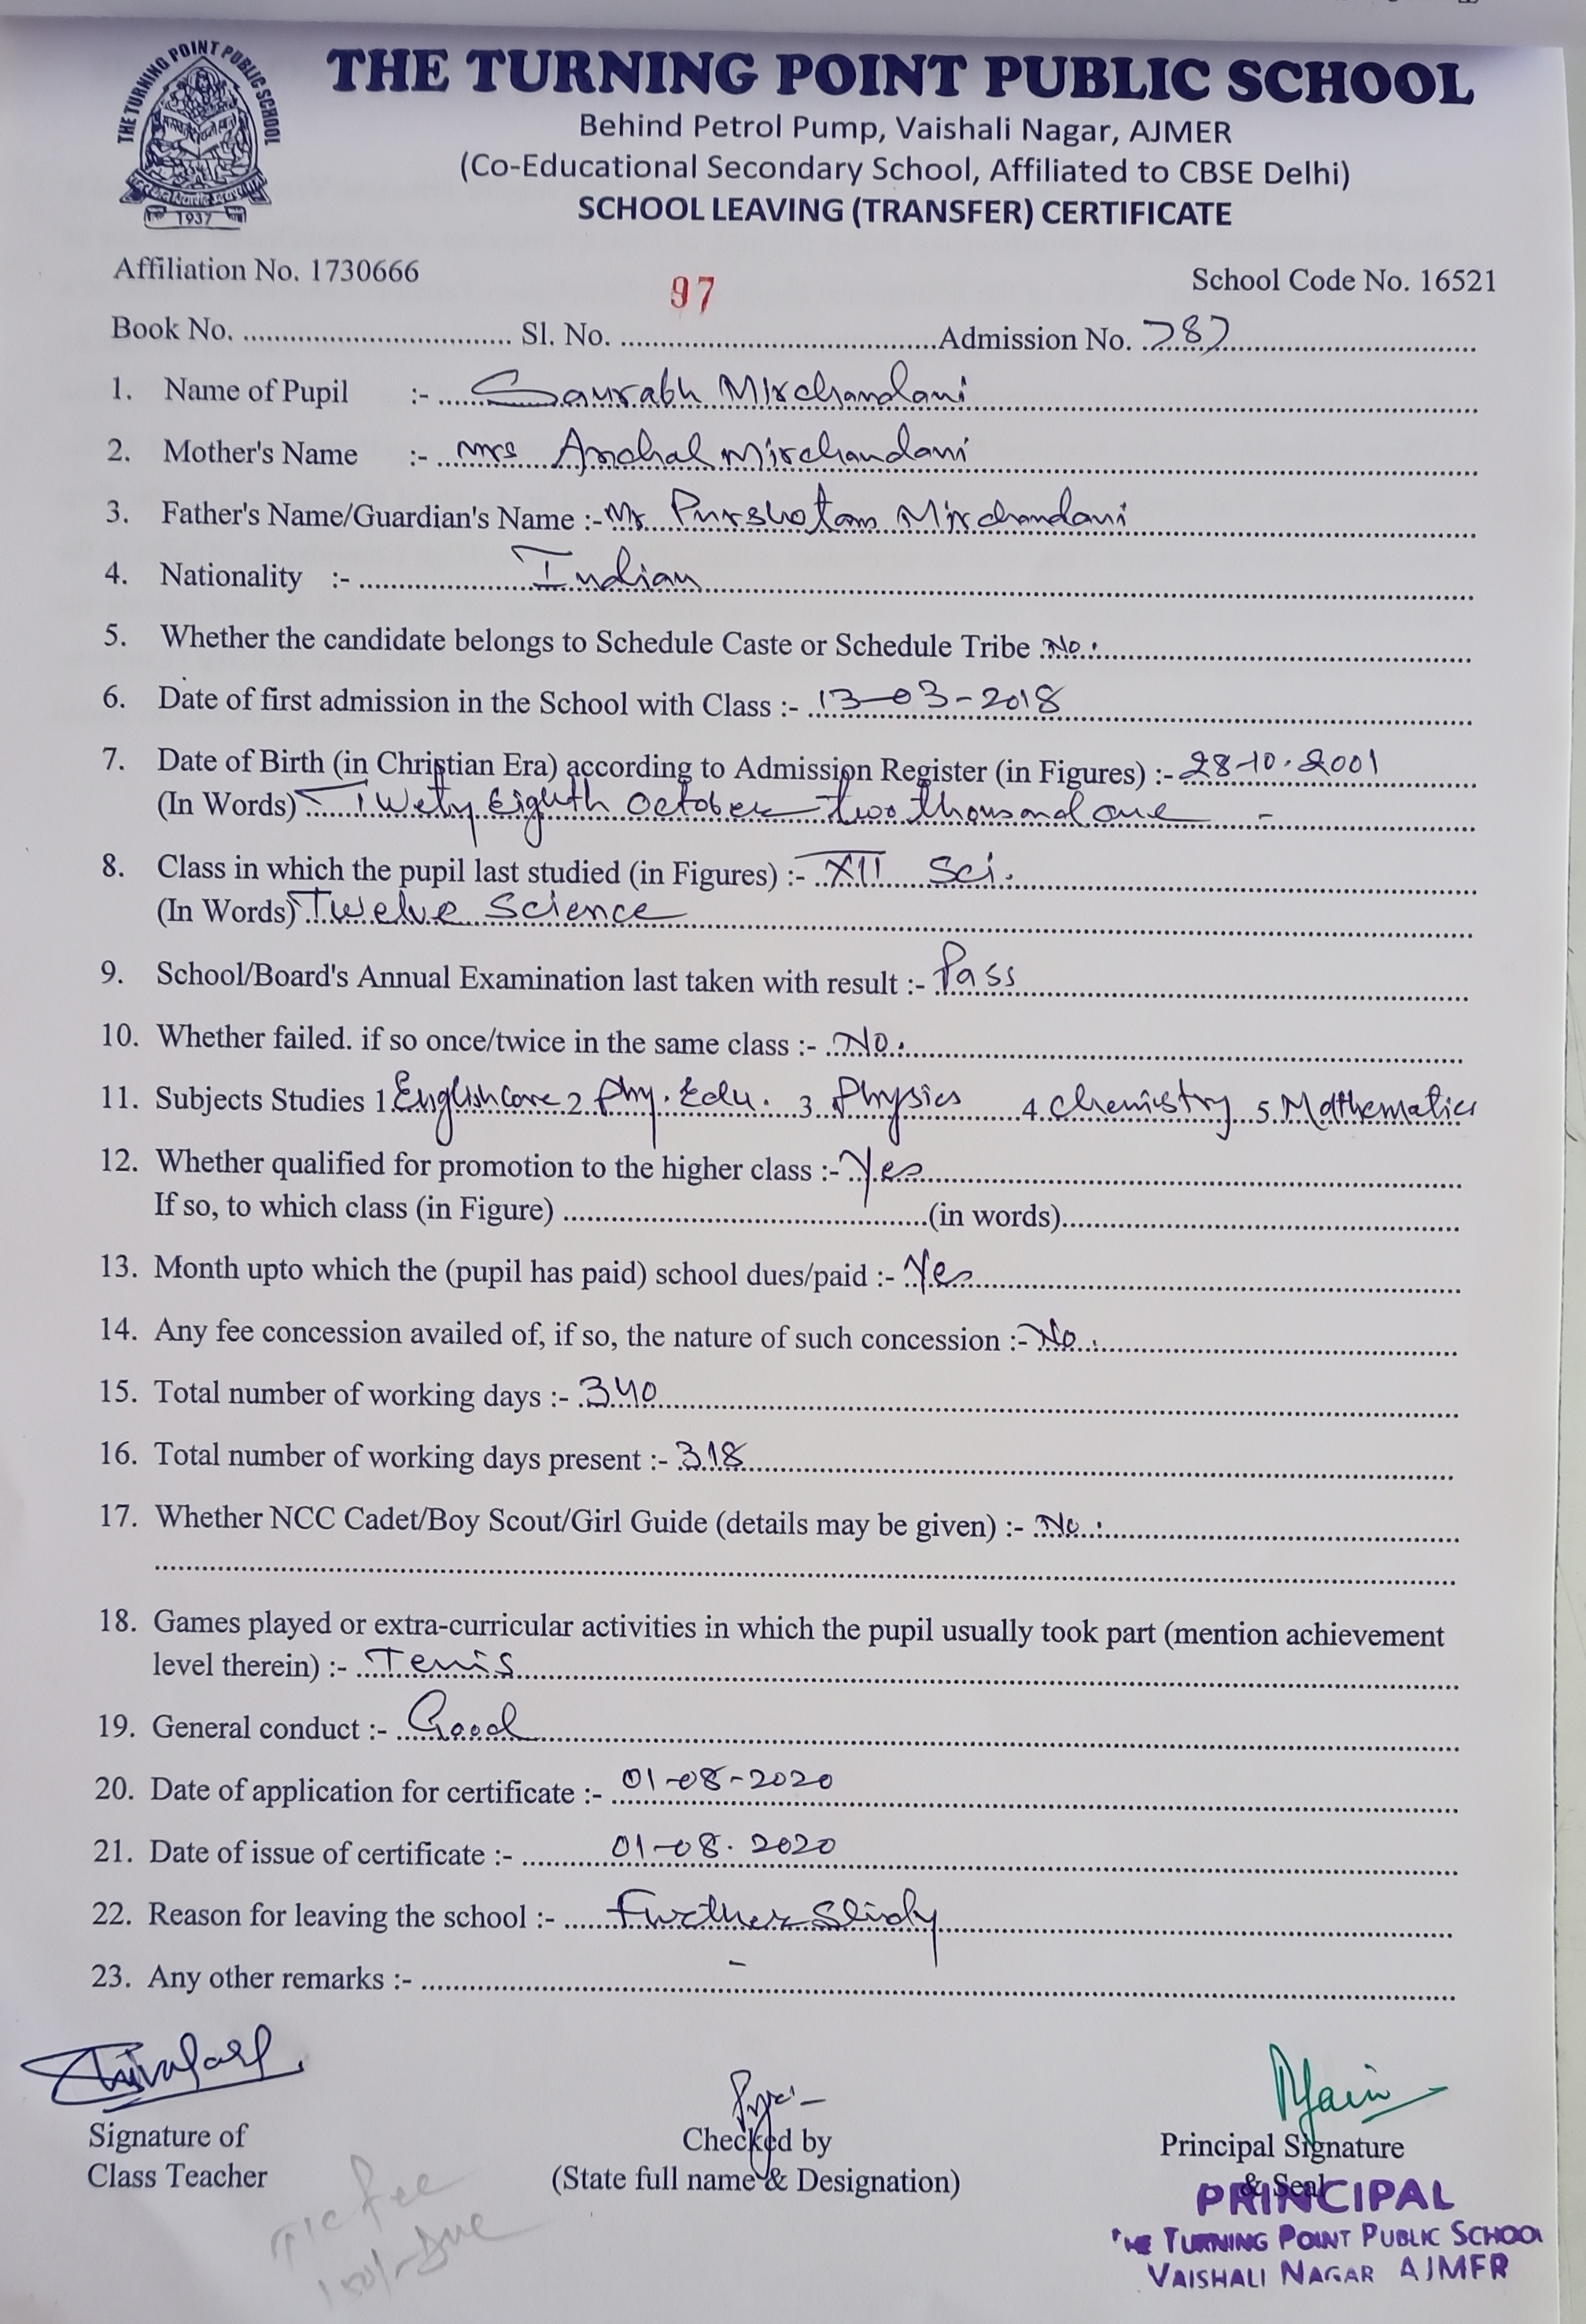 THE TURNING POINT PUBLIC SCHOOL
THE TURNING POINT PUBLIC SCHOOL
1937
Behind Petrol Pump, Vaishali Nagar, AJMER
(Co-Educational Secondary School, Affiliated to CBSE Delhi)
SCHOOL LEAVING (TRANSFER) CERTIFICATE
Affiliation No. 1730666 School Code No. 16521
97
Book No. Sl. No. Admission No. 782
1. Name of Pupil :- Saurabh Mirchandani
2. Mother's Name :- Mrs Anchal Mirchandani
3. Father's Name/Guardian's Name :- Mr Purshotam Mirchandani
4. Nationality :- Indian
5. Whether the candidate belongs to Schedule Caste or Schedule Tribe No.
6. Date of first admission in the School with Class :- 13-03-2018
7. Date of Birth (in Christian Era) according to Admission Register (in Figures) :- 28-10.2001
(In Words) Twety Eighth October two thousand one -
8. Class in which the pupil last studied (in Figures) :- XII Sci.
(In Words) Twelve Science
9. School/Board's Annual Examination last taken with result :- Pass
10. Whether failed. if so once/twice in the same class :- No.
11. Subjects Studies 1 English Core 2 Phy. Edu. 3 Physics 4 Chemistry 5 Mathematics
12. Whether qualified for promotion to the higher class :- Yes
If so, to which class (in Figure) (in words)
13. Month upto which the (pupil has paid) school dues/paid :- Yes
14. Any fee concession availed of, if so, the nature of such concession :- No.
15. Total number of working days :- 340
16. Total number of working days present :- 318
17. Whether NCC Cadet/Boy Scout/Girl Guide (details may be given) :- No.
18. Games played or extra-curricular activities in which the pupil usually took part (mention achievement
level therein) :- Tenis
19. General conduct :- Good
20. Date of application for certificate :- 01-08-2020
21. Date of issue of certificate :- 01-08.2020
22. Reason for leaving the school :- Further Study
23. Any other remarks :- -
Signature of
Class Teacher
Checked by
(State full name & Designation)
Jain
Principal Signature
& Seal
PRINCIPAL
THE TURNING POINT PUBLIC SCHOOL
VAISHALI NAGAR AJMER
T/C fee
Due